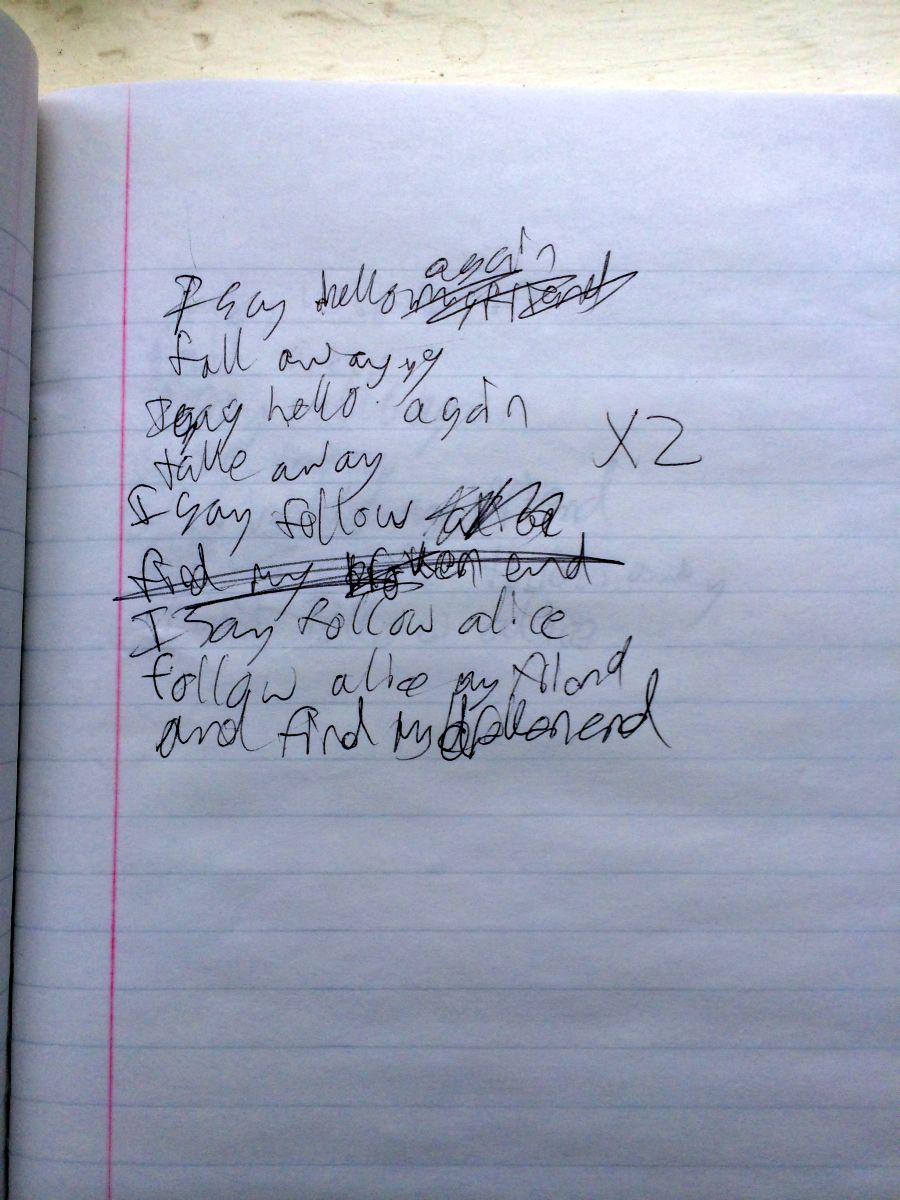 I say hello again
fall away
I say hello again
take away
X2
I say follow
find my broken end
I say follow alice
follow alice my friend
and find my broken end